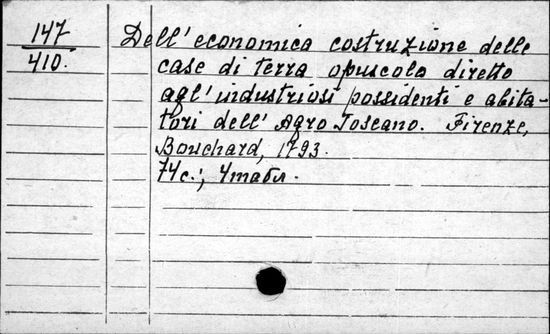 147
410.
Dell' economica costruzione delle
case di terra opuscolo diretto
agl' industriosi possidenti e abita-
tori dell' Agro Toscano. Firenze,
Bouchard, 1793.
74 с.; 4 табл.